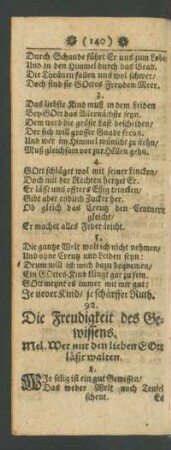 (140)
Durch Schande führt Er uns zum Lobe
Und in den Himmel durch das Grab.
Die Tyrannen fallen uns wol schwer,
Doch sind sie GOttes Freuden-Meer.
3.
Das liebste Kind muß in dem Leiden
Bey GOtt das Allernächste seyn.
Dem wird die größte Last bescheiden,
Der sich will grosser Gnade freun.
Und wer im Himmel wünscht zu stehn,
Muß gleichsam vor zur Höllen gehn.
4.
GOtt schläget wol mit seiner Lincken,
Doch mit der Rechten hertzet Er.
Er läßt uns offters Eßig trincken,
Gibt aber endlich Zucker her.
Ob gleich das Creutz den Centnern
gleicht,
Er machet alles Feder-leicht.
5.
Die gantze Welt wolt ich nicht nehmen,
Und ohne Creutz und Leiden seyn:
Drum will ich mich dazu bequemen,
Ein GOttes-Kind klingt gar zu fein.
GOtt meynt es immer mit mir gut:
Je lieber Kind, je schärffer Ruth.
92.
Die Freudigkeit des Gewissens.
Mel. Wer nur den lieben GOtt
läßt walten.
1.
WIe selig ist ein gut Gewissen,
Das weder Welt noch Teufel
scheut.
Es